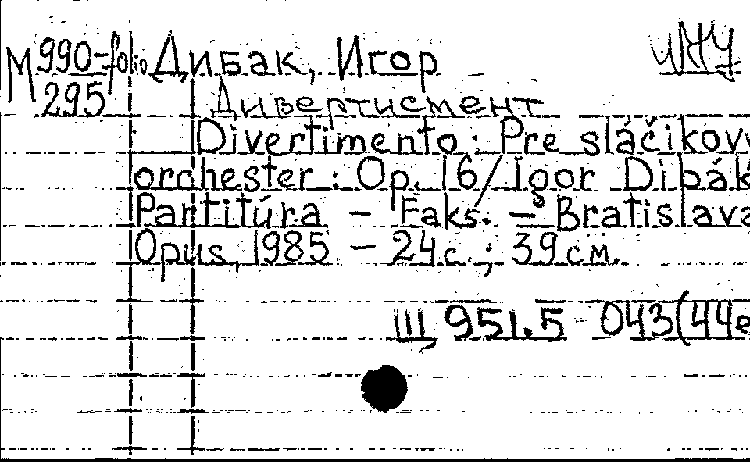 М 990-folio Дибак, Игор
295 Дивертисмент
Divertimento : Pre sláčikovy
orchester : Op. 16 / Igor Dibák
Partitúra – Faks. – Bratislava
Opus, 1985 – 24 с. ; 39 см.
Щ 951.5 - 043(44е